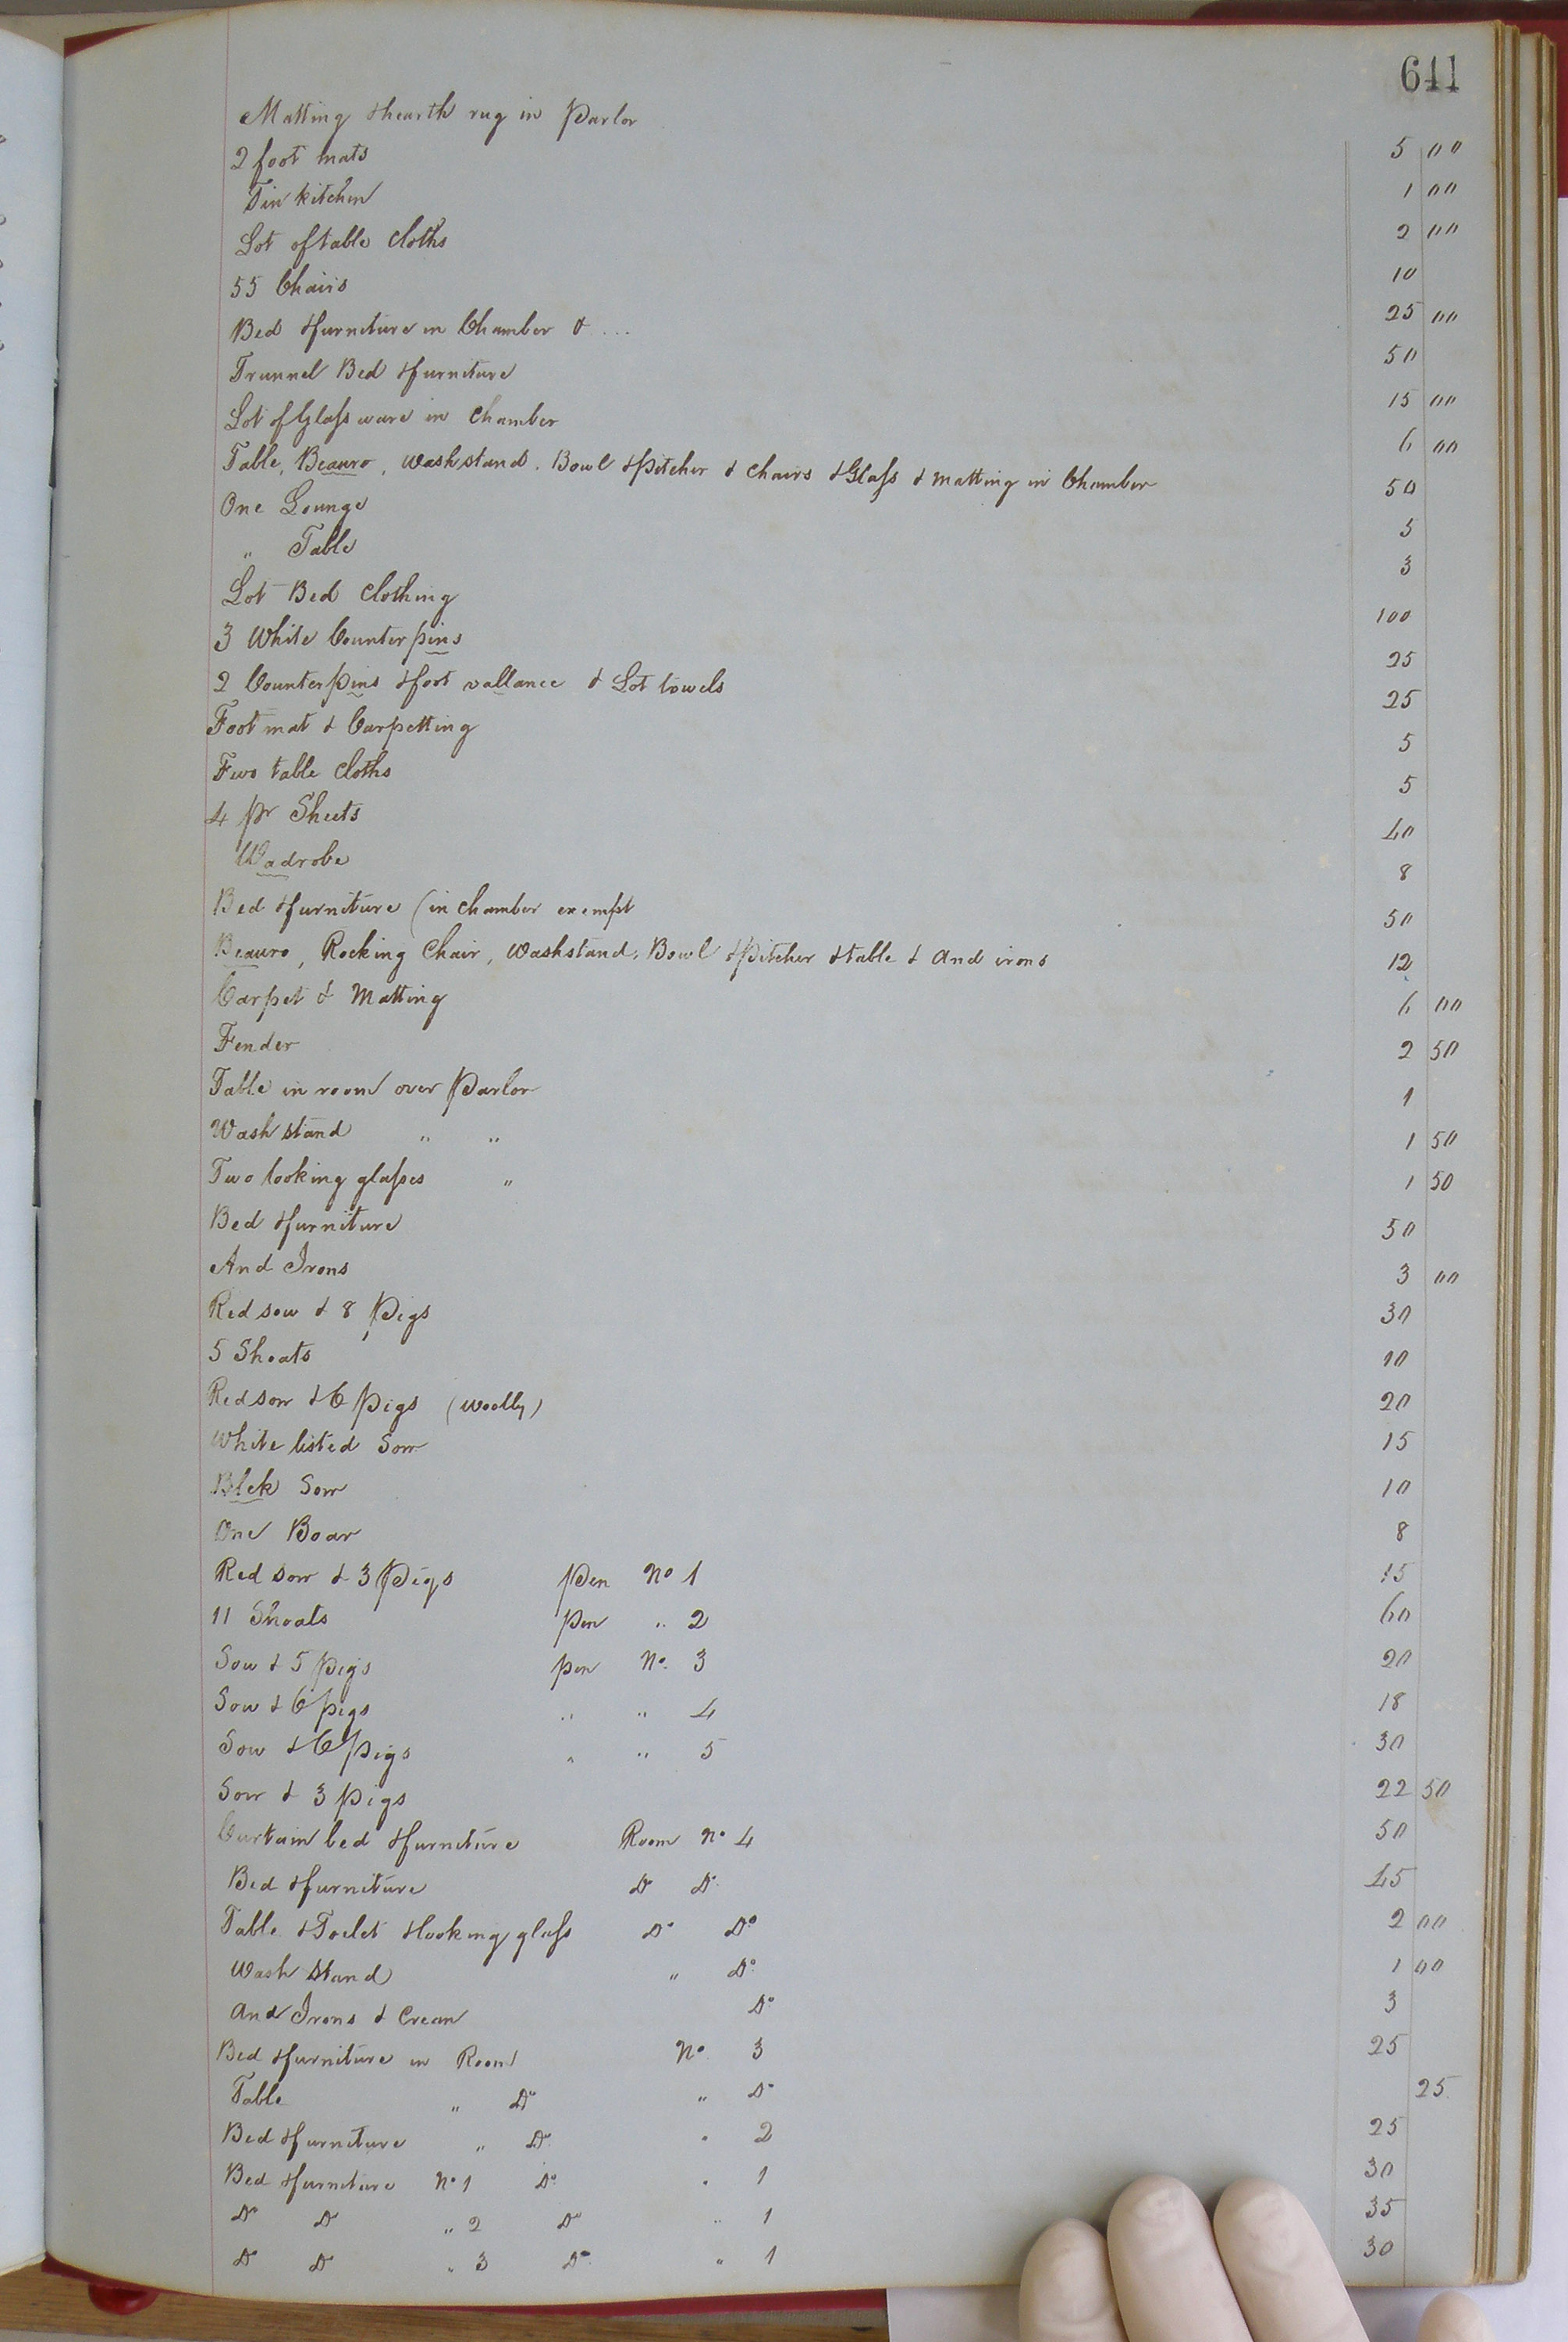 641
Matting & hearth rug in Parlor 5 00
2 foot mats 1 00
Tin kitchen 2 00
Lot of table cloths 10
55 Chairs 25 00
Bed & furniture in Chamber & ... 50
Trunnel Bed & furniture 15 00
Lot of Glass ware in Chamber 6 00
Table, Beauro, Washstand, Bowl & Pitcher & Chairs & Glass & matting in Chamber 50
One Lounge 5
" Table 3
Lot Bed Clothing 100
3 White Counterpins 25
2 Counterpins & foot vallance & Lot towels 25
Foot mat & Carpetting 5
Two table Cloths 5
4 pr Sheets 40
Wadrobe 8
Bed & furniture (in Chamber exempt 50
Beauro, Rocking Chair, Washstand, Bowl & Pitcher & table & And irons 12
Carpet & Matting 6 00
Fender 2 50
Table in room over Parlor 1
Wash stand " " 1 50
Two looking glasses " 1 50
Bed & furniture 50
And Irons 3 00
Red sow & 8 Pigs 30
5 Shoats 10
Red sow & 6 Pigs (Woolly) 20
White listed Sow 15
Blck Sow 10
One Boar 8
Red sow & 3 Pigs Pen No 1 15
11 Shoats Pen " 2 60
Sow & 5 Pigs pen No. 3 20
Sow & 6 pigs " " 4 18
Sow & 6 Pigs " " 5 30
Sow & 3 pigs 22 50
Curtain bed & furniture Room No 4 50
Bed & furniture Do Do 45
Table & Toilet & looking glass Do Do 2 00
Wash Stand " Do 1 00
And Irons & Crean Do 3
Bed & furniture in Room No 3 25
Table " Do " Do 25
Bed & furniture " Do " 2 25
Bed & furniture No 1 Do " 1 30
Do Do " 2 Do " 1 35
Do Do " 3 Do " 1 30